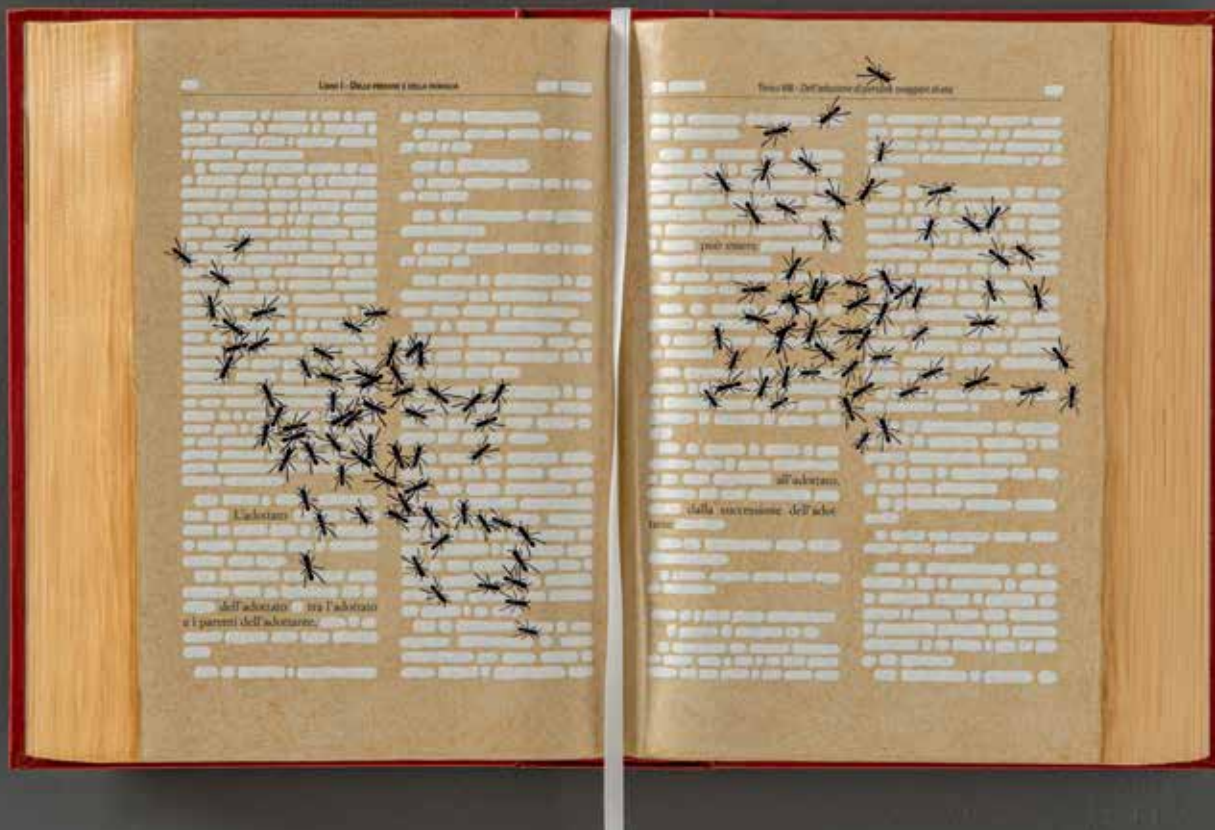 LIBRO I - DELLE PERSONE E DELLA FAMIGLIA
L'adottato
dell'adottato tra l'adottato
e i parenti dell'adottante,
TITOLO VIII - Dell'adozione di persone maggiori di età
può essere
all'adottato,
dalla successione dell'adot
tante